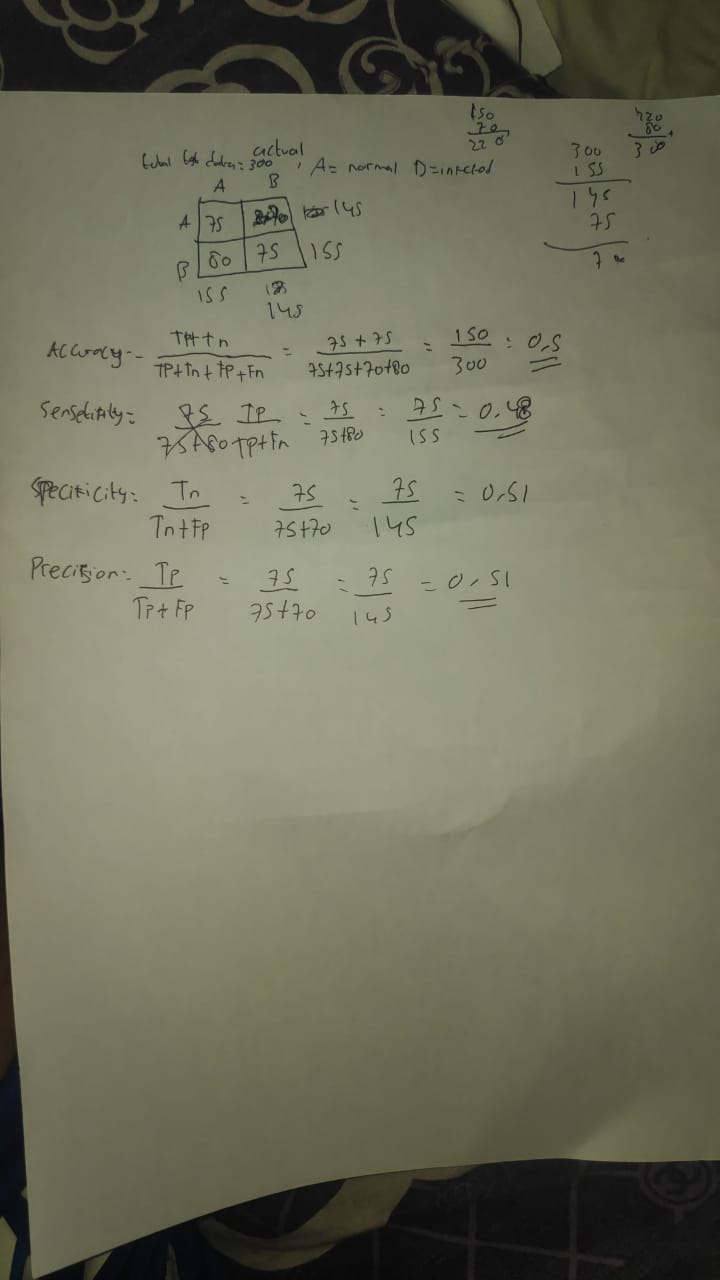 150
70
220
220
80
300
actual
total data = 300, A = normal D = infected
300
155
145
75
7
A B
A 75 70 145
B 80 75 155
155
145
Accuracy = TP+tn / TP+Tn+FP+Fn = 75+75 / 75+75+70+80 = 150 / 300 : 0,5
Sensetivity = 75 / 75+80 TP / TP+Fn = 75 / 75+80 = 75 / 155 = 0,48
Specificity: Tn / Tn+FP = 75 / 75+70 = 75 / 145 = 0,51
Precision: TP / TP+FP = 75 / 75+70 = 75 / 145 = 0,51